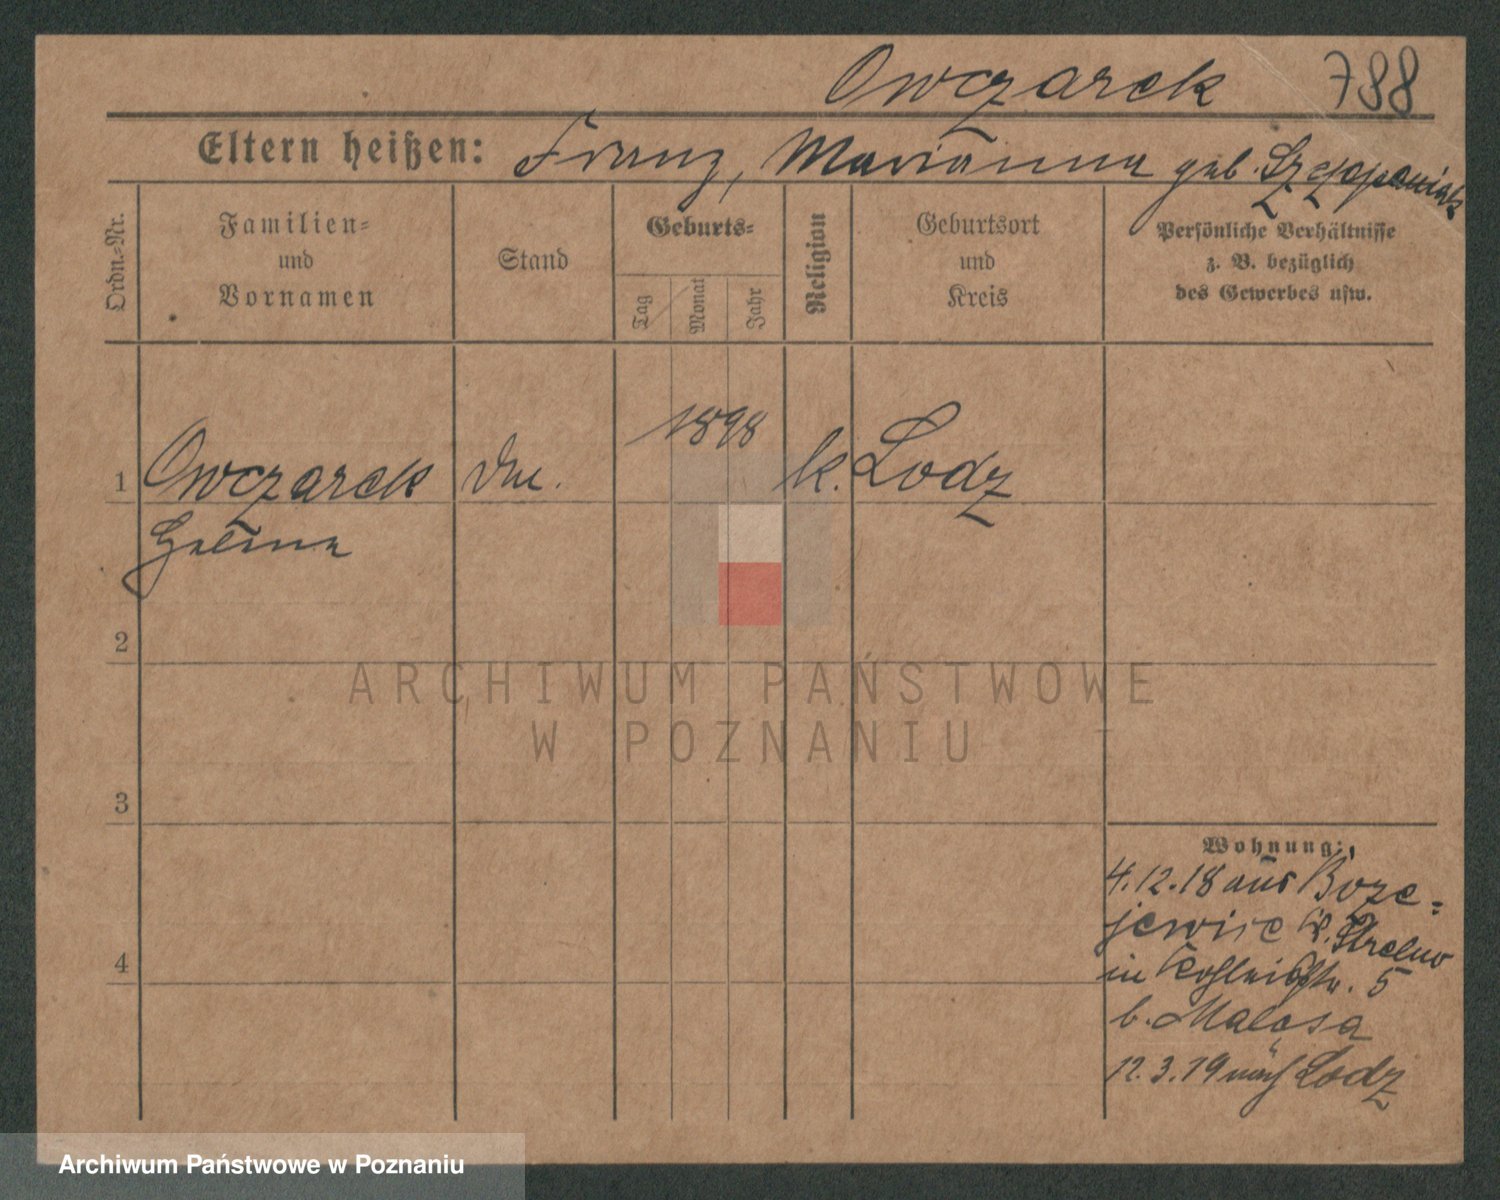 Owczarek 788
Eltern heißen: Franz, Marianna geb. Szczepaniak
Ordn.-Nr.
Familien-
und
Vornamen
Stand
Geburts-
Tag
Monat
Jahr
Religion
Geburtsort
und
Kreis
Persönliche Verhältnisse
z. B. bezüglich
des Gewerbes usw.
1 Owczarek 1898 k. Lodz
Halina
2
3
4
Wohnung:
4.12.18 aus Boze-
jewice Kr. Strelno
in str. 5
b. Małosa
12.3.19 nach Lodz
ARCHIWUM PAŃSTWOWE
W POZNANIU
Archiwum Państwowe w Poznaniu